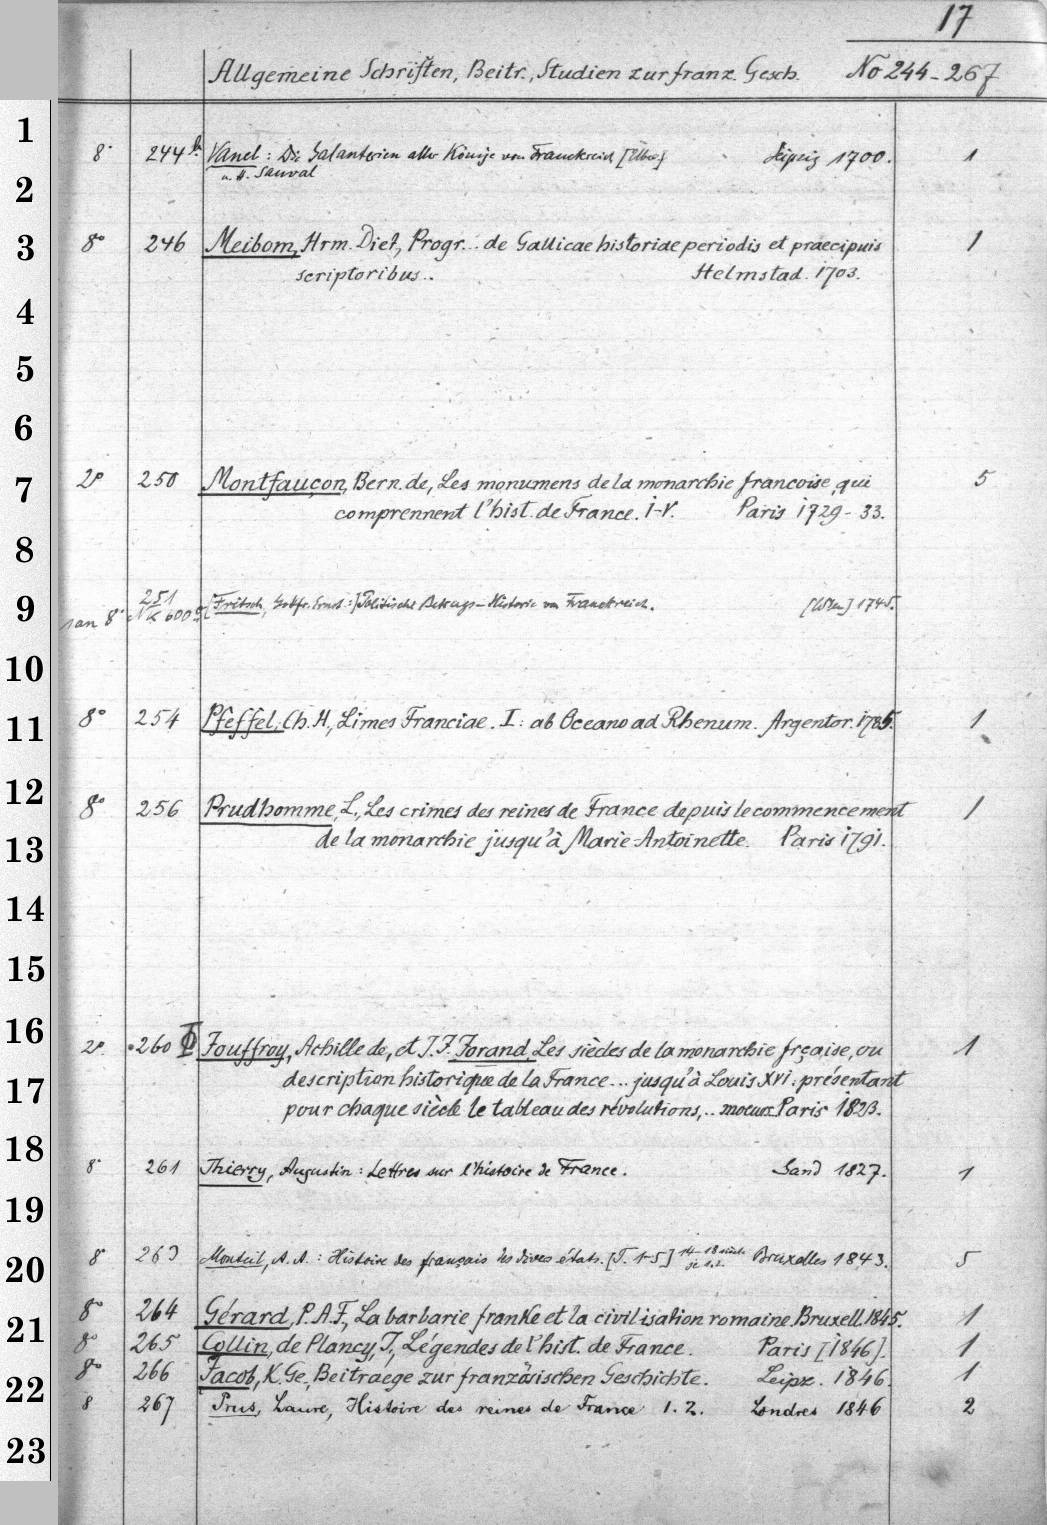 17
Allgemeine Schriften, Beitr., Studien zur franz. Gesch. No 244-267
1
8° 244 b. Vanel: Die Galanterien aller Könige von Franckreich [Übers] Leipzig 1700. 1
u. H. Sauval
2
3 8° 246 Meibom, Hrm. Diet, Progr... de Gallicae historiae periodis et praecipuis 1
scriptoribus.. Helmstad. 1703.
4
5
6
7 2° 250 Montfauçon, Bern. de, Les monumens de la monarchie francoise, qui 5
comprennent l'hist. de France. I-V. Paris 1729-33.
8
251
9 1 an 8° 600 [Fritsch, Gottfr. Ernst:] Politische Betrugs-Historie von Franckreich. 1745.
10
11 8° 254 Pfeffel, Ch. H., Limes Franciae. I: ab Oceano ad Rhenum. Argentor. 1785. 1
12 8° 256 Prudhomme, L., Les crimes des reines de France depuis le commencement 1
13 de la monarchie jusqu'à Marie-Antoinette. Paris 1791.
14
15
16 2° 260 Jouffroy, Achille de, et J. F. Jorand, Les siècles de la monarchie frçaise, ou 1
17 description historique de la France... jusqu'à Louis XVI: présentant
pour chaque siècle le tableau des révolutions,.. moeurs Paris 1823.
18 8° 261 Thierry, Augustin: Lettres sur l'histoire de France. Gand 1827. 1
19
20 8° 263 Monteil, A. A.: Histoire des français des divers états. [T. 1-5] 14-18 siècle Bruxelles 1843. 5
21 8° 264 Gérard, P. A. F., La barbarie franke et la civilisation romaine. Bruxell. 1845. 1
8° 265 Collin, de Plancy, J., Légendes de l'hist. de France. Paris [1846]. 1
22 8° 266 Jacob, K. Ge., Beitraege zur französischen Geschichte. Leipz. 1846. 1
8 267 Prus, Laure, Histoire des reines de France 1. 2. Londres 1846 2
23